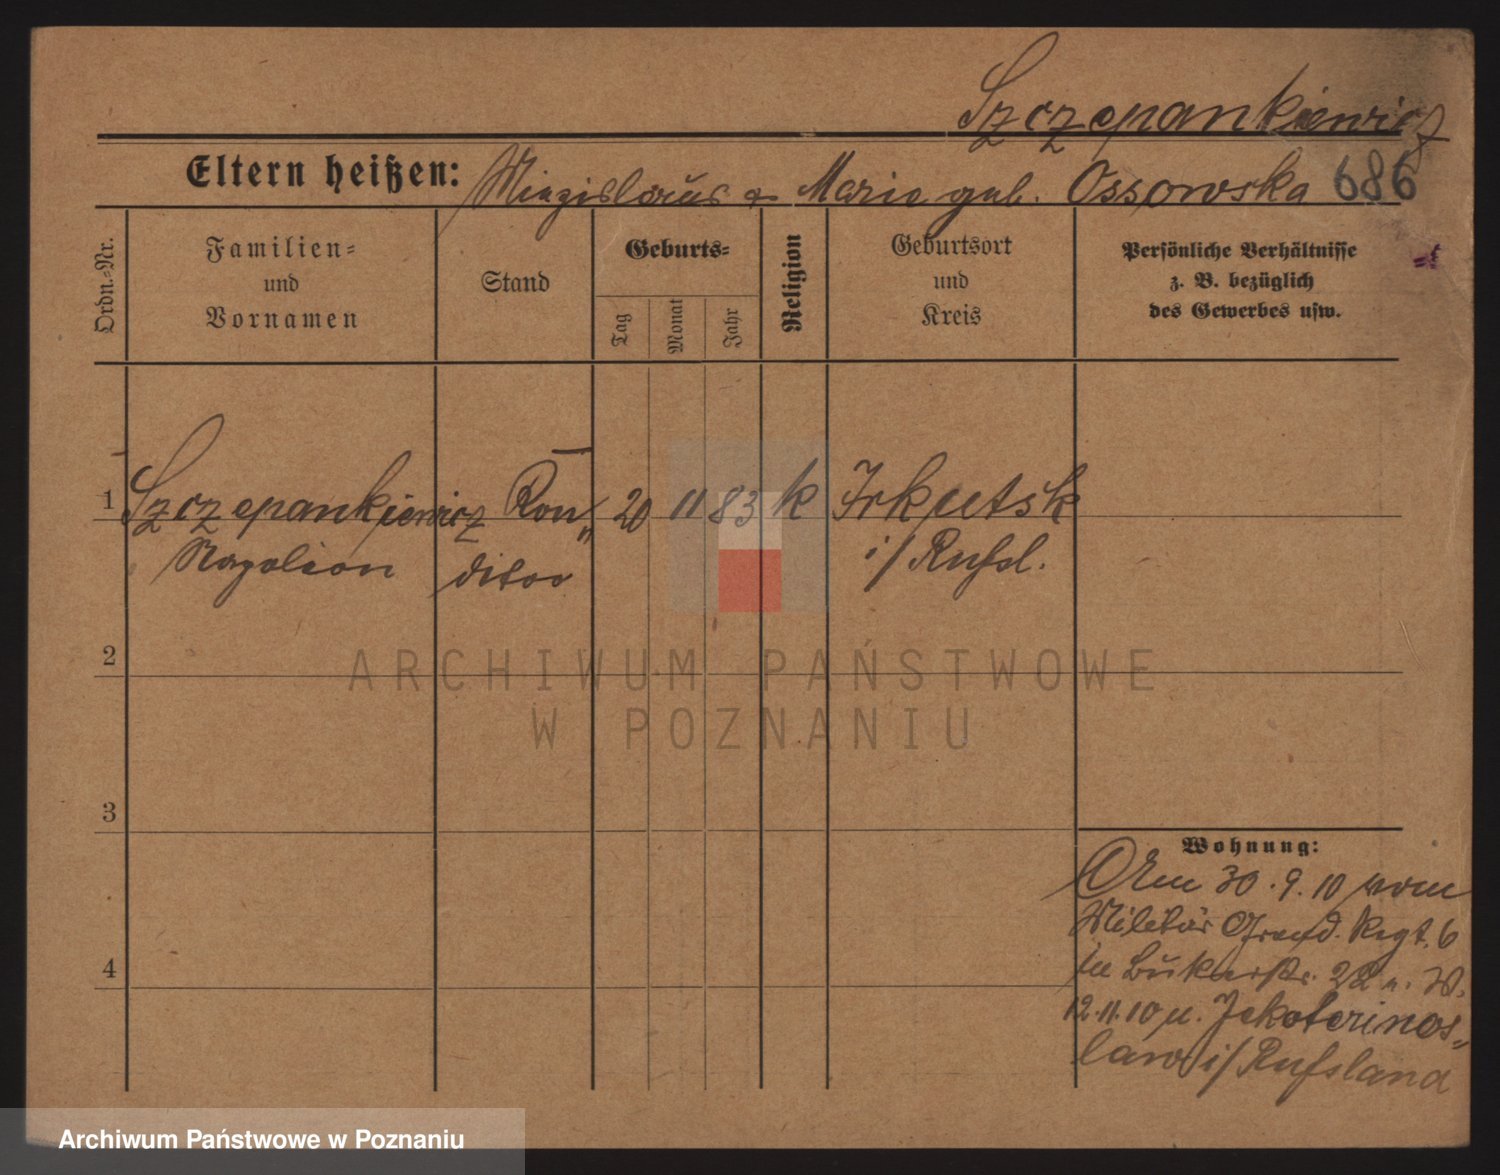 Szczepankiewicz
Eltern heißen: Miezislaus & Marie geb. Ossowska 686
Ordn.-Nr.
Familien-
und
Vornamen
Stand
Geburts-
Tag
Monat
Jahr
Religion
Geburtsort
und
Kreis
Persönliche Verhältnisse
z. B. bezüglich
des Gewerbes usw.
1 Szczepankiewicz Kon„ 20 11 83 k Irkutsk
Napoleon ditor i/ Rußl.
2
3
4
Wohnung:
Am 30.9.10 vom
Militär Grend. Regt. 6
in Bukerstr. 22 u. W.
12.11.10 n. Jekaterinos„
law i/ Rußland
ARCHIWUM PAŃSTWOWE
W POZNANIU
Archiwum Państwowe w Poznaniu